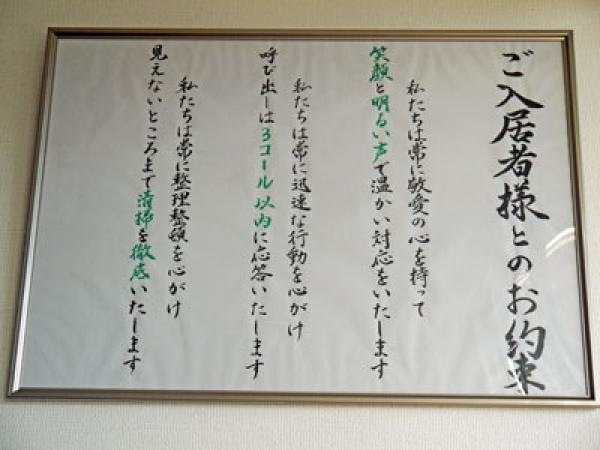 ご入居者様とのお約束
私たちは常に敬愛の心を持って
笑顔と明るい声で温かい対応をいたします
私たちは常に迅速な行動を心がけ
呼び出しは3コール以内に応答いたします
私たちは常に整理整頓を心がけ
見えないところまで清掃を徹底いたします